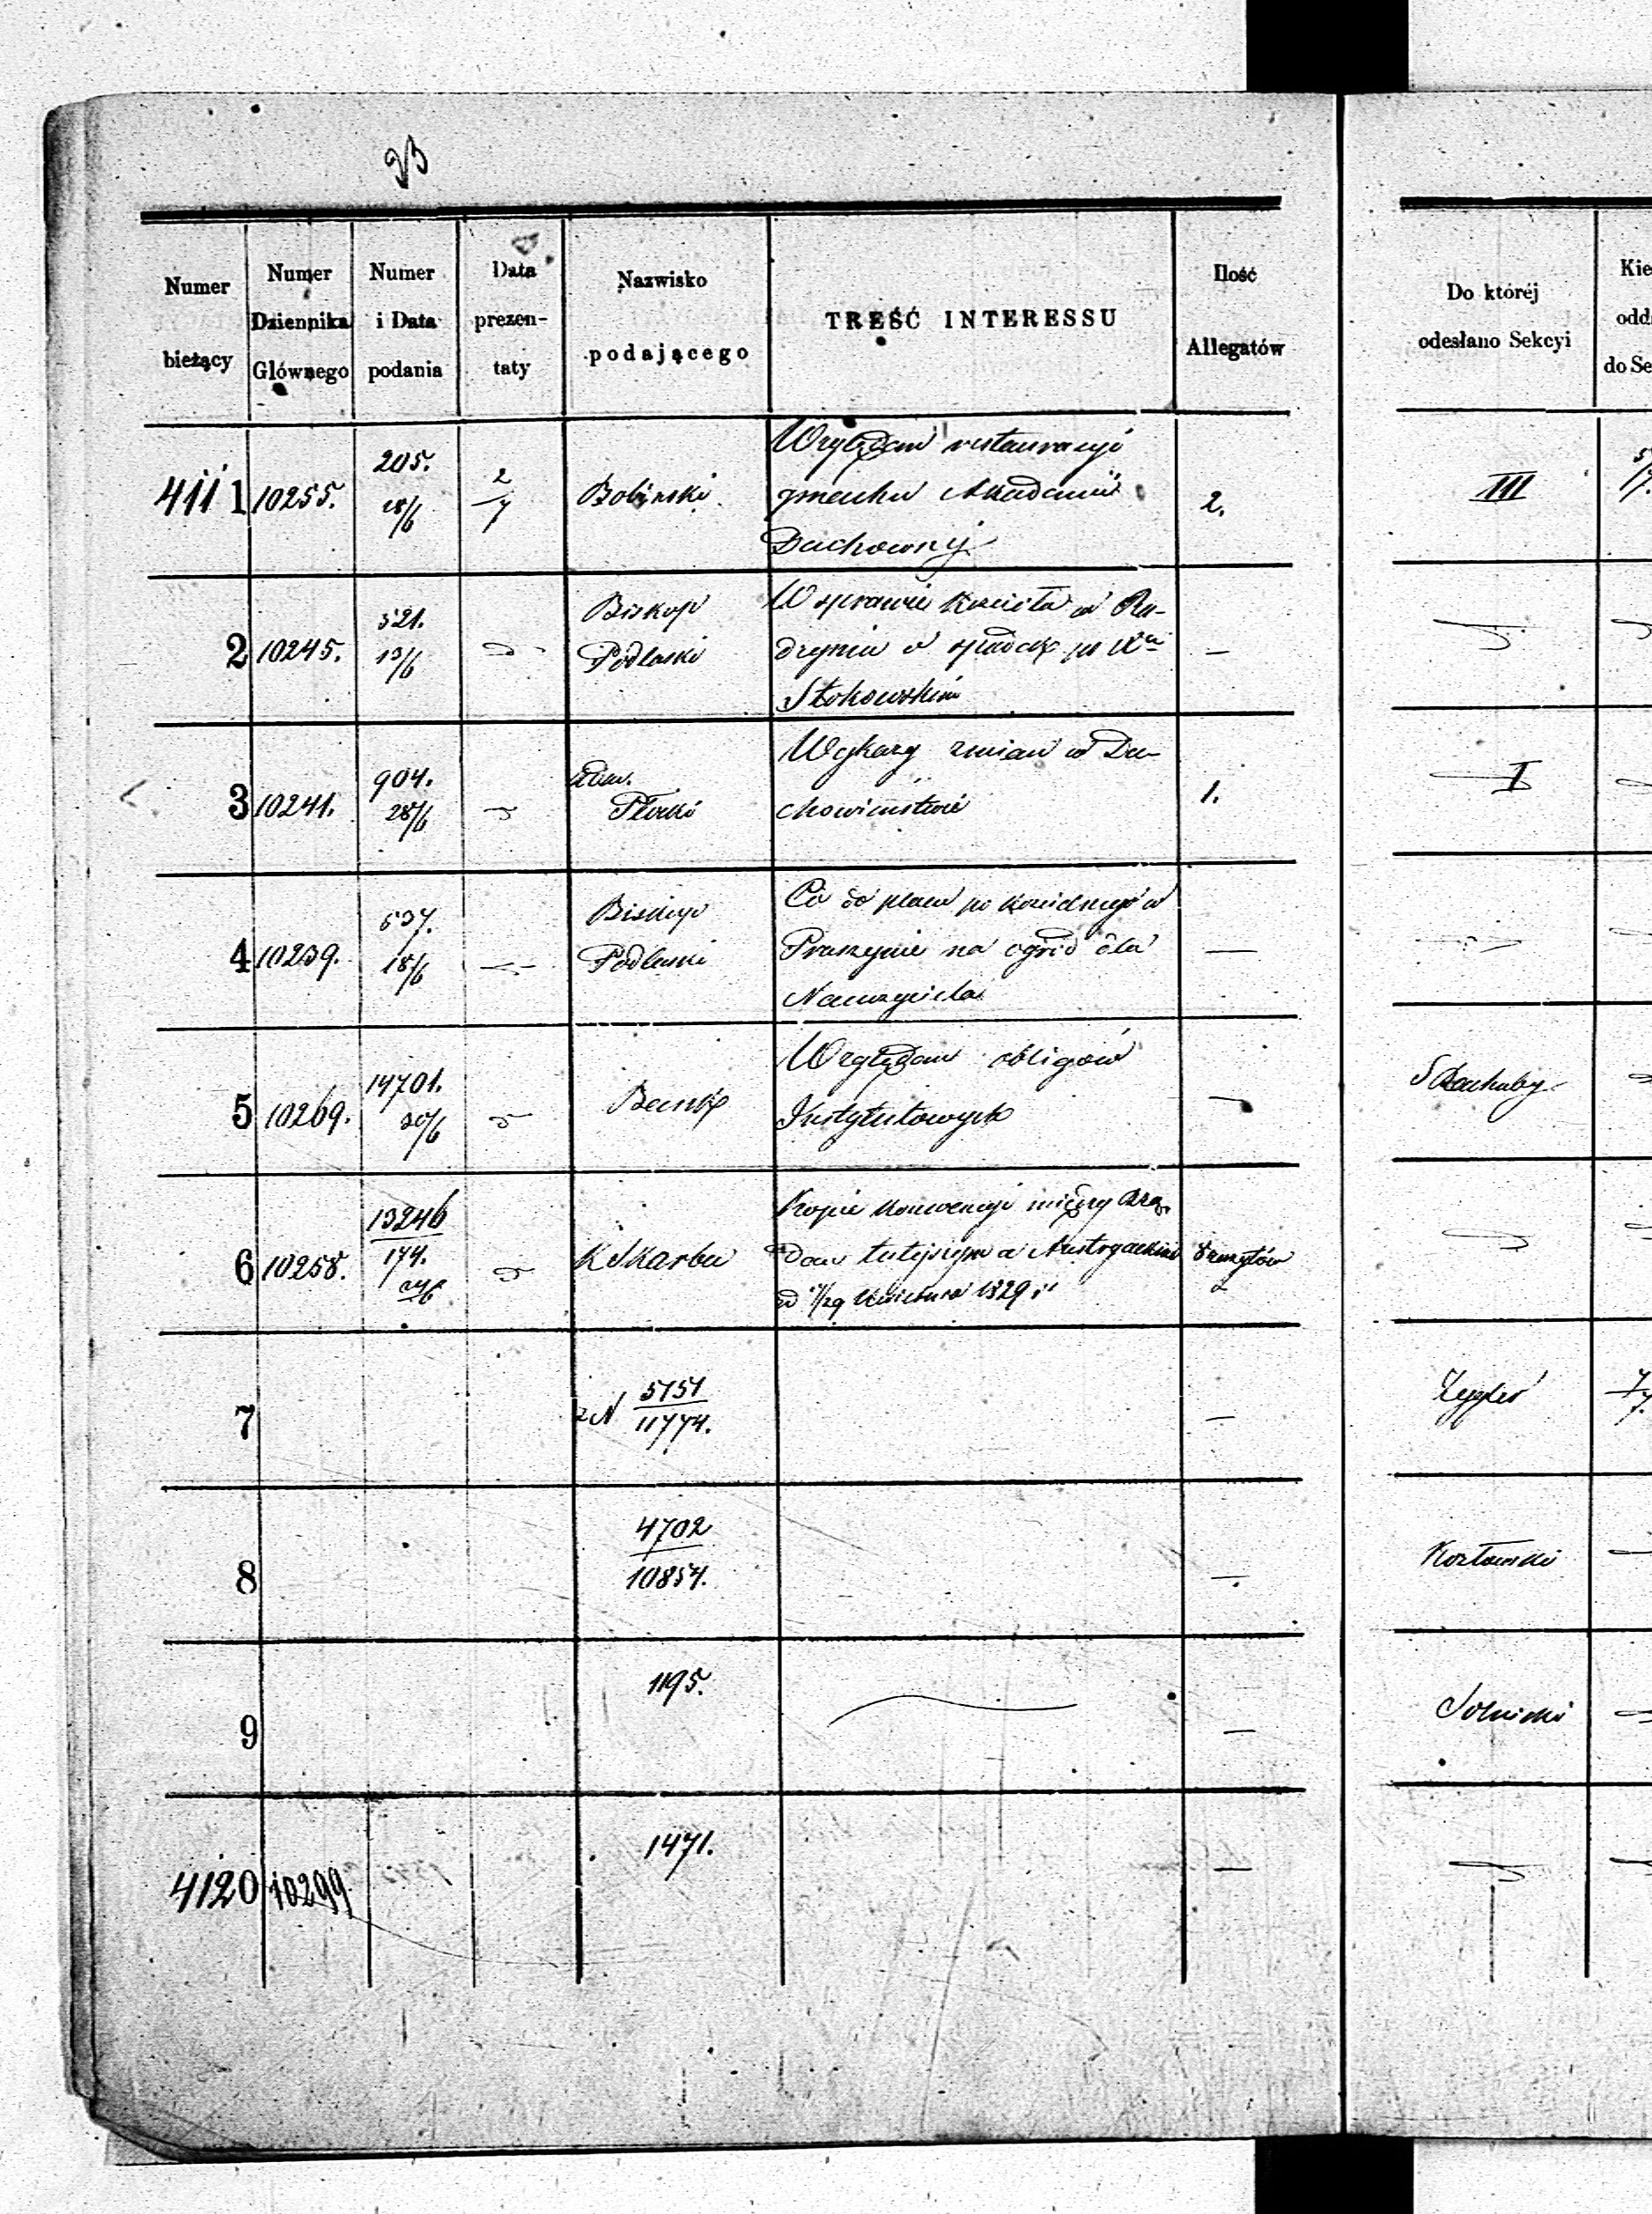 Numer bieżący
Numer Dziennika Głównego
Numer i Data podania
Data prezen-taty
Nazwisko podającego
TREŚĆ INTERESSU
Ilość Allegatów
Do któréj odesłano Sekcyi
Kie
odd
do Se
4111 10255. 205. 28/6 2/7 Bobinski
Względem restauracyi
gmachu Akademii
Duchownéj
2. III
2 10245. 521. 13/6 Biskup Podlaski
W sprawie Kościoła w Ra-
dzyniu o spadek po
Stokowskim
—
3 10241. 904. 28/6 Płocki
Wykazy zmian w Du-
chowieństwie
1. I
4 10239. 537. 18/6 Biskup Podlaski
Co do placu po kościelnego w
Pruszynie na ogród dla
Nauczyciela
—
5 10269. 14701. 20/6 Bank
Względem obligów
Instytutowych
S Rachuby
6 10258. 13246 174. 24/6 K Skarbu
Kopie konwencyi między Rzą-
dem tutejszym a Austryackim
1829
7 z N 5151
11774.
—
8 4702
10854.
— Kozłowski
9 1195.
—
4120 10299 1471.
—